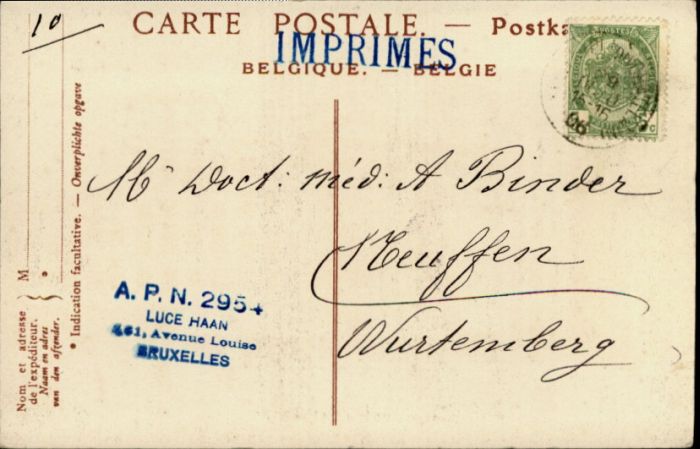 10
CARTE POSTALE. — Postka
IMPRIMES
BELGIQUE. — BELGIE
Mr Doct: méd: A Binder
Neuffen
Wurtemberg
A. P. N. 2954
LUCE HAAN
461, Avenue Louise
BRUXELLES
Nom et adresse
de l'expéditeur.
Naam en adres
van den afzender.
M
* Indication facultative. — Onverplichte opgave